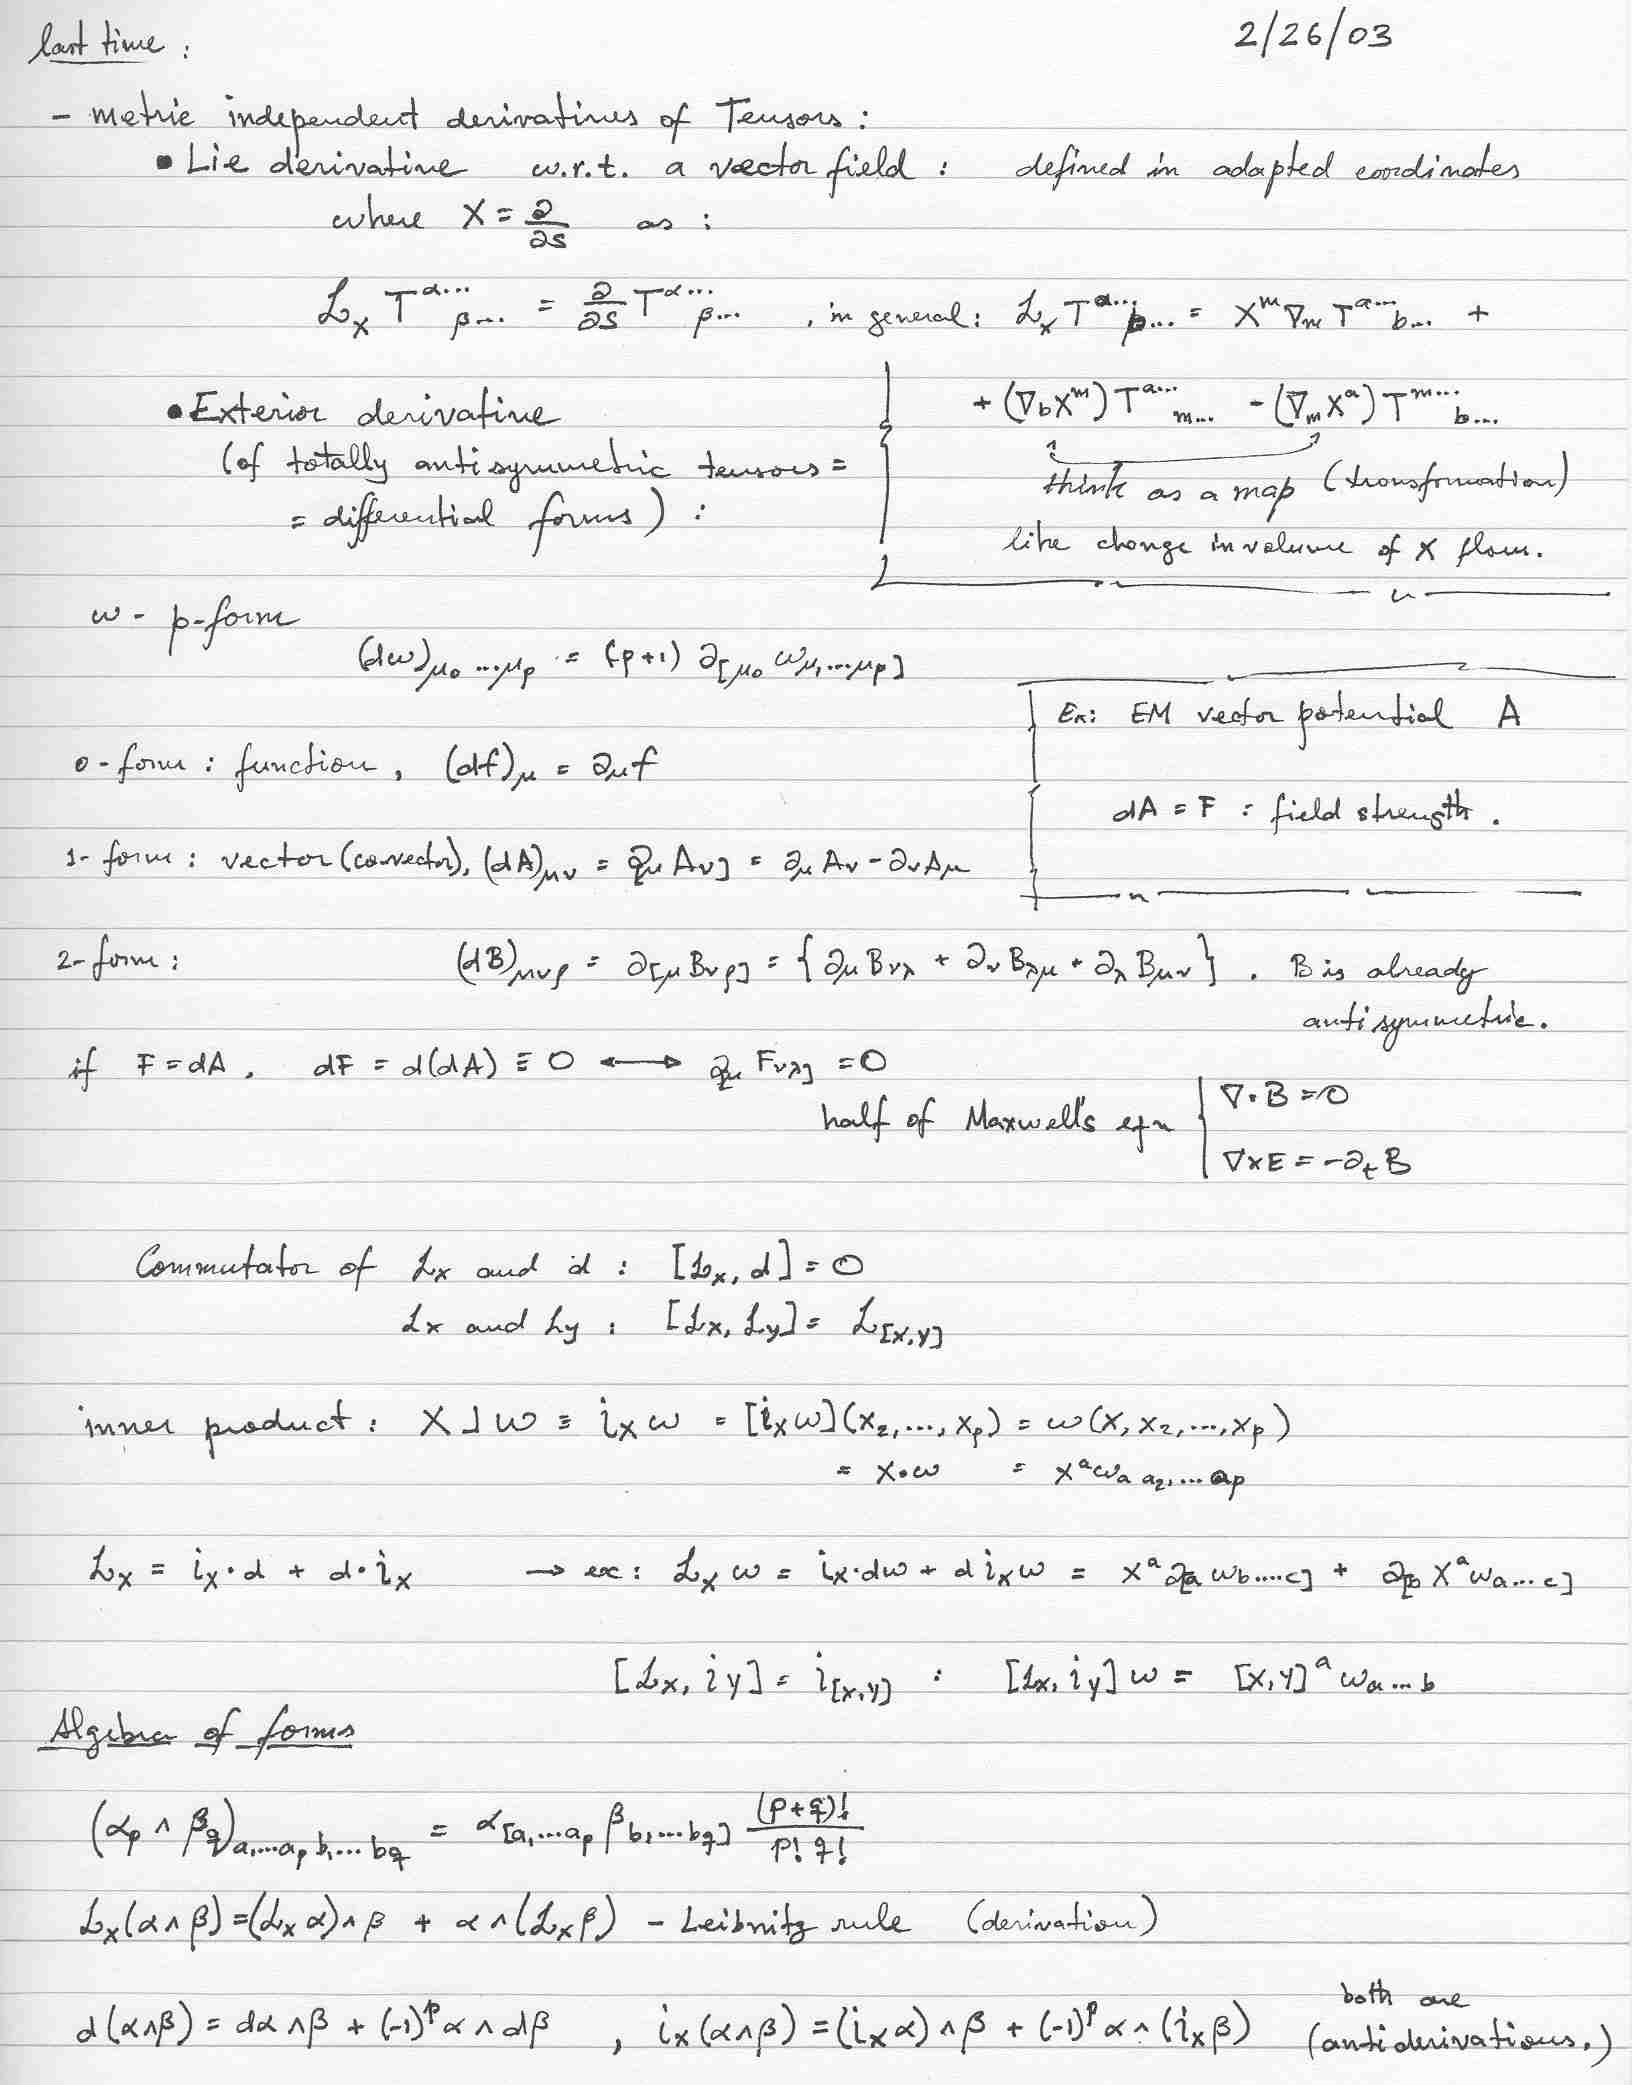 last time : 2/26/03
- metric independent derivatives of Tensors :
• Lie derivative w.r.t. a vector field : defined in adapted coordinates
where X = ∂/∂s as :
ℒ_X T^{α...}_{β...} = ∂/∂s T^{α...}_{β...} , in general: ℒ_X T^{a...}_{b...} = X^m ∇_m T^{a...}_{b...} +
+ (∇_b X^m) T^{a...}_{m...} - (∇_m X^a) T^{m...}_{b...}
think as a map (transformation)
like change in volume of X flow.
• Exterior derivative
(of totally antisymmetric tensors =
= differential forms) :
ω - p-form
(dω)_{μ₀...μp} = (p+1) ∂_{[μ₀} ω_{μ₁...μp]}
Ex: EM vector potential A
dA = F : field strength.
0-form : function, (df)_μ = ∂_μ f
1-form : vector (covector), (dA)_{μν} = ∂_{[μ} A_{ν]} = ∂_μ A_ν - ∂_ν A_μ
2-form : (dB)_{μνρ} = ∂_{[μ} B_{νρ]} = { ∂_μ B_{νλ} + ∂_ν B_{λμ} + ∂_λ B_{μν} } . B is already
antisymmetric.
if F = dA , dF = d(dA) ≡ 0 ⟷ ∂_{[μ} F_{νλ]} = 0
half of Maxwell's eqn
∇·B = 0
∇×E = -∂_t B
Commutator of ℒ_X and d : [ℒ_X, d] = 0
ℒ_X and ℒ_y : [ℒ_X, ℒ_y] = ℒ_{[X,Y]}
inner product : X ⌟ ω ≡ i_X ω = [i_X ω](X₂,...,X_p) = ω(X, X₂,...,X_p)
= X•ω = X^a ω_{a a₂,...a_p}
ℒ_X = i_X·d + d·i_X → ex : ℒ_X ω = i_X·dω + d i_X ω = X^a ∂_{[a} ω_{b....c]} + ∂_{[b} X^a ω_{a...c]}
[ℒ_X, i_Y] = i_{[X,Y]} : [ℒ_X, i_Y] ω = [X,Y]^a ω_{a...b}
Algebra of forms
(α_p ∧ β_q)_{a₁...a_p b₁...b_q} = α_{[a₁...a_p} β_{b₁...b_q]} (p+q)!/p! q!
ℒ_X(α∧β) = (ℒ_X α)∧β + α∧(ℒ_X β) - Leibnitz rule (derivation)
d(α∧β) = dα∧β + (-1)^p α∧dβ , i_X(α∧β) = (i_X α)∧β + (-1)^p α∧(i_X β) both are
(antiderivations.)